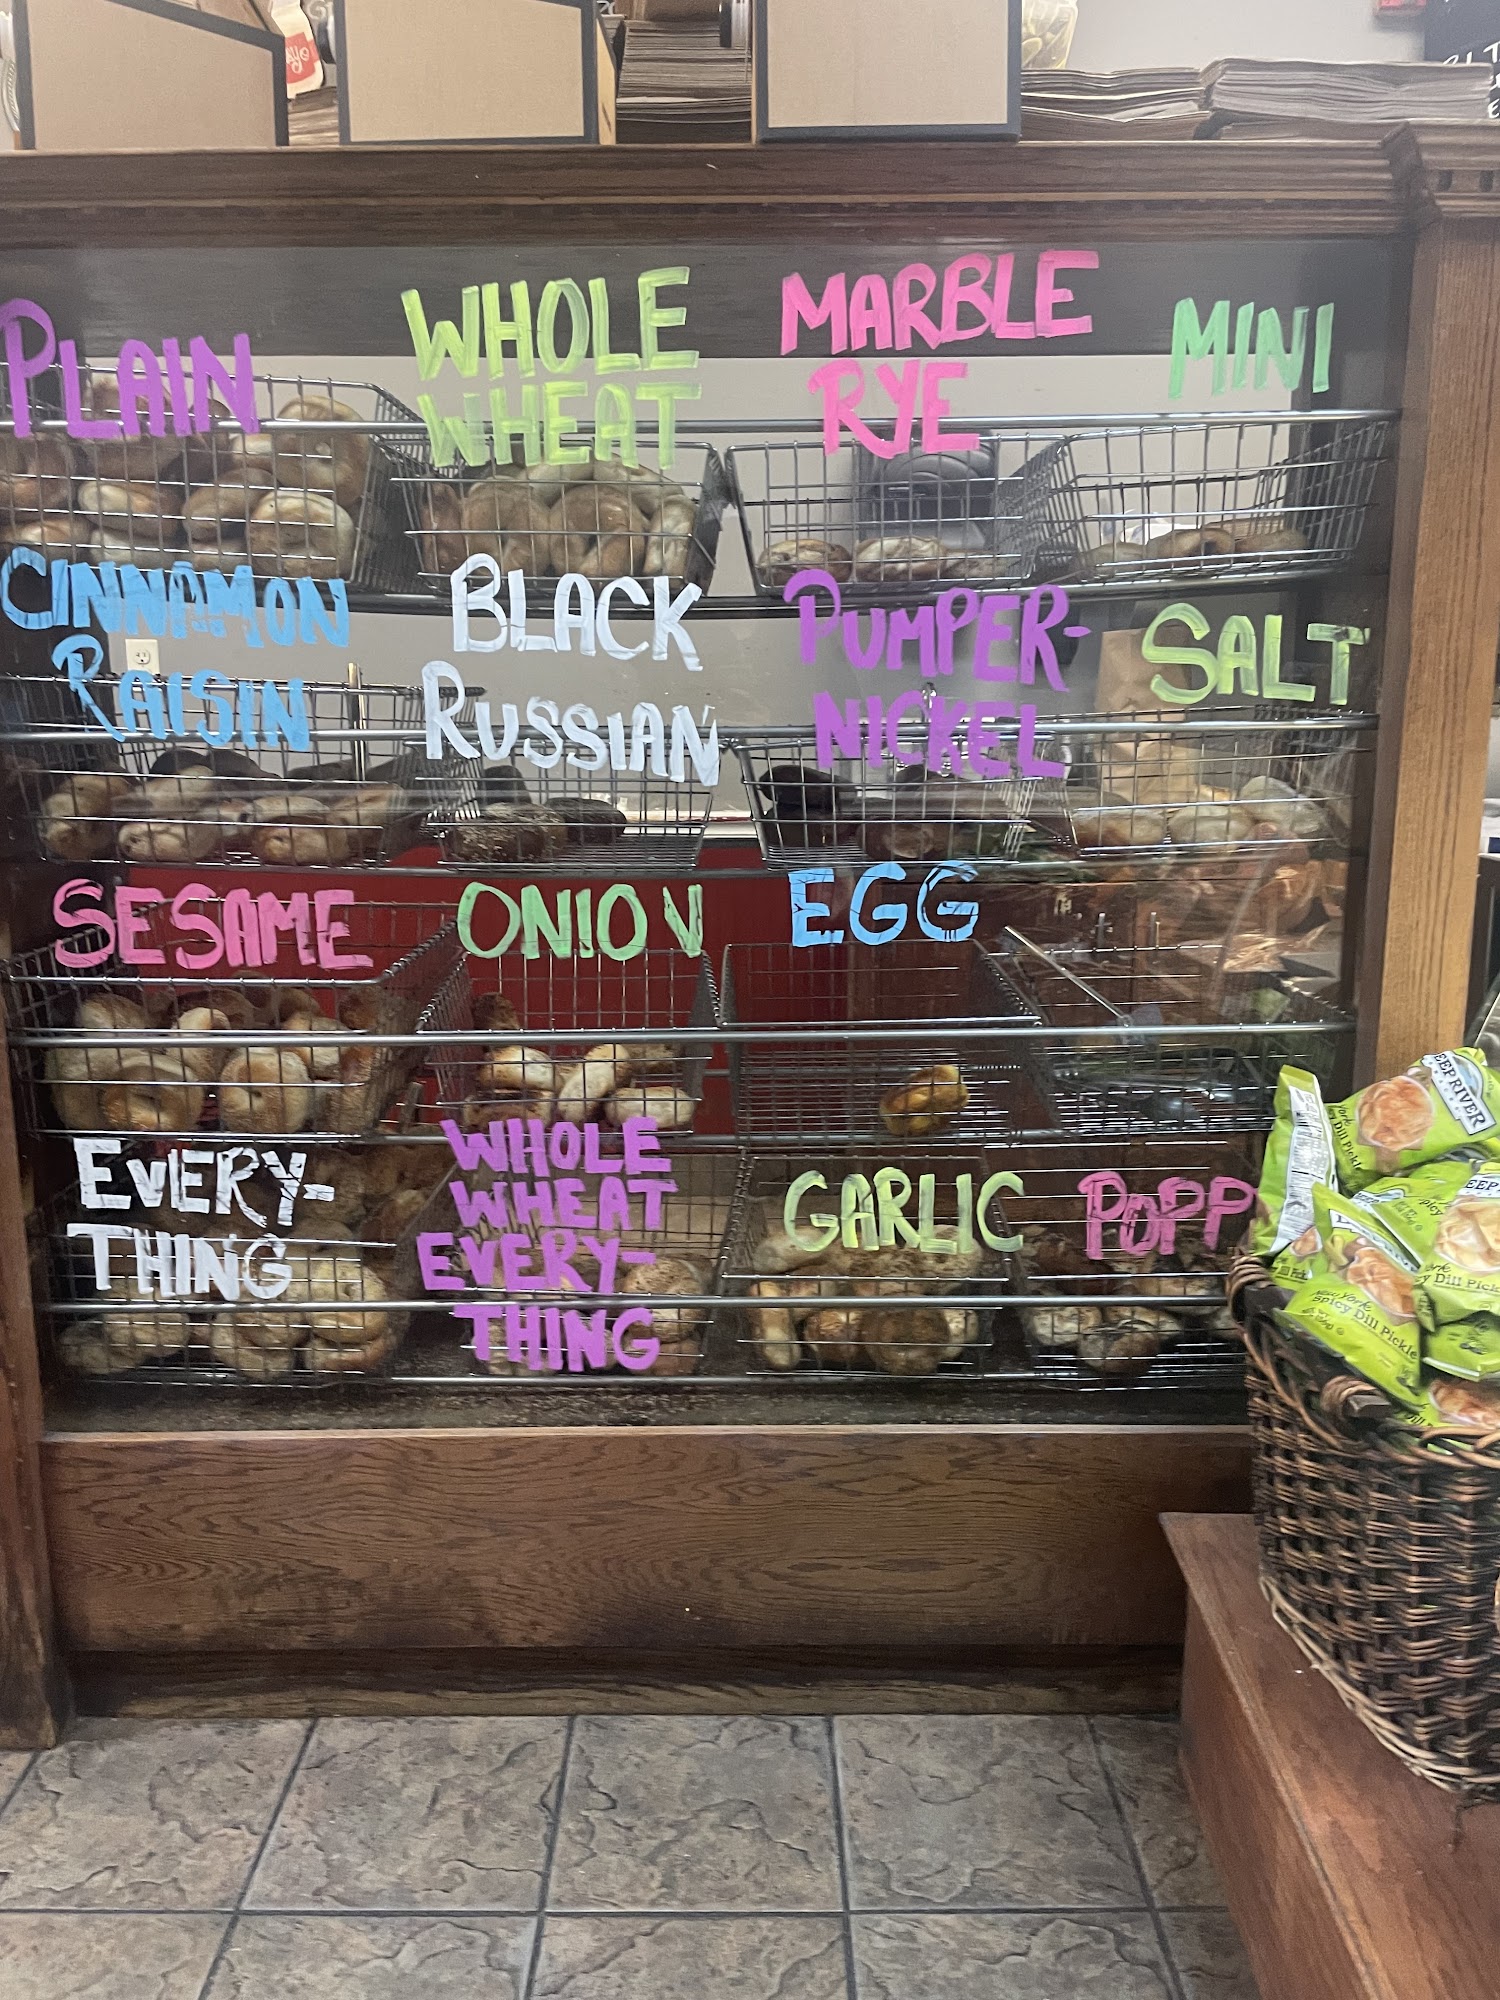 PLAIN
WHOLE
WHEAT
MARBLE
RYE
MINI
CINNAMON
RAISIN
BLACK
RUSSIAN
PUMPER-
NICKEL
SALT
SESAME
ONION
EGG
EVERY-
THING
WHOLE
WHEAT
EVERY-
THING
GARLIC
POPP
EEP RIVER
Dill Pickl
New York
Spicy Dill Pickle
Dill Pick